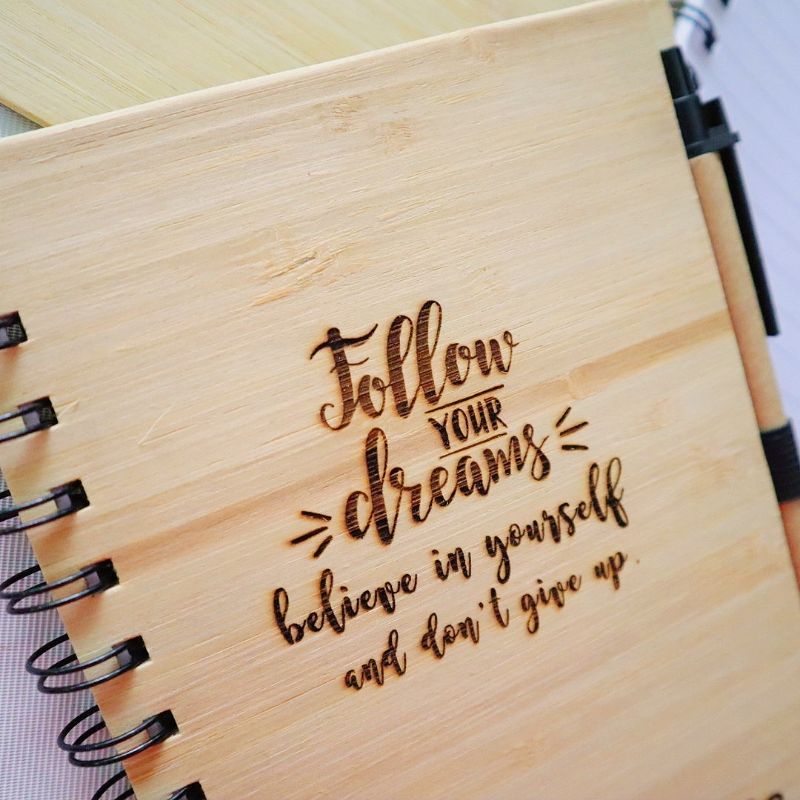 Follow
YOUR
dreams
believe in yourself
and don't give up.